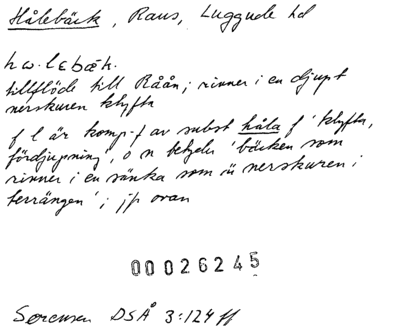 Hålebäck, Raus, Luggude hd
hω.lɛbæk.
tillflöde till Råån; rinner i en djupt
nerskuren klyfta
f l är komp-f av subst håla f 'klyfta,
fördjupning', o n betyder 'bäcken som
rinner i en sänka som är nerskuren i
terrängen'; jfr ovan
00026245
Sørensen DSÅ 3:124 ff